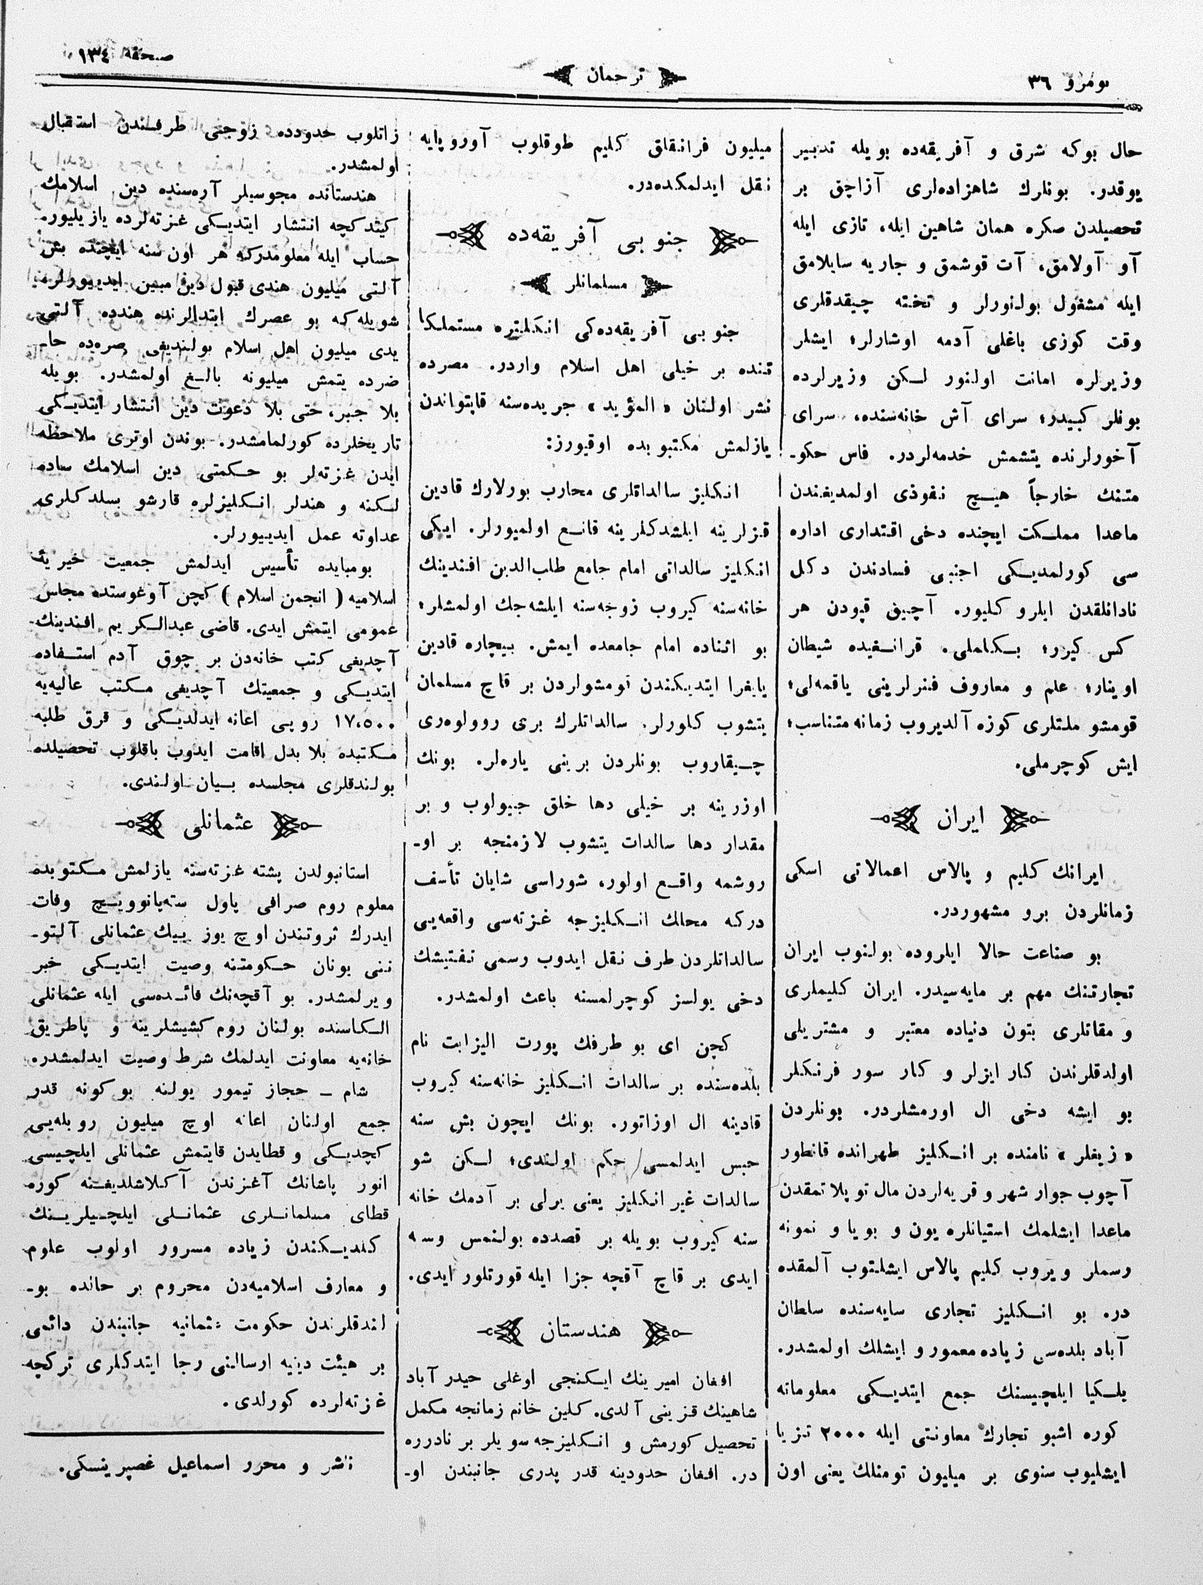 نومرو ٣٦
ترجمان
صحفه ١٣٤
حال بوكه شرق و آفریقه‌ده بویله تدبیر
یوقدر. بونلرك شاهزاده‌لری آزاچق بر
تحصیلدن صكره همان شاهین ایله، تازی ایله
آو آولامق، آت قوشمق و جاریه سایلامق
ایله مشغول بولنورلر و تخته چیقدقلری
وقت كوزی باغلی آدمه اوشارلر؛ ایشلر
وزیرلره امانت اولنور لكن وزیرلرده
بونلر كبیدر؛ سرای آش خانه‌سنده، سرای
آخورلرنده یتشمش خدمه‌لردر. فاس حكو-
متنك خارجاً هیچ نفوذی اولمدیغندن
ماعدا مملكت ایچنده دخی اقتداری اداره
سی كورلمدیكی اجنبی فسادندن دكل
نادانلقدن ایلرو كلیور. آچیق قپودن هر
كس كیرر؛ بكلملی. قرانغیده شیطان
اوینار؛ علم و معارف فنرلرینی یاقمه‌لی؛
قومشو ملتلری كوزه آلدیروب زمانه متناسب؛
ایش كوچرملی.
ایران
ایرانك كلیم و پالاس اعمالاتی اسكی
زمانلردن برو مشهوردر.
بو صناعت حالا ایلروده بولنوب ایران
تجارتنك مهم بر مایه‌سیدر. ایران كلیملری
و مقاتلری بتون دنیاده معتبر و مشتریلی
اولدقلرندن كار ایزلر و كار سور فرنكلر
بو ایشه دخی ال اورمشلردر. بونلردن
« زیغلر » نامنده بر انكلیز طهرانده قانطور
آچوب جوار شهر و قریه‌لردن مال توپلاتمقدن
ماعدا ایشلمك استیانلره یون و بویا و نمونه
رسملر ویروب كلیم پالاس ایشلتوب آلمقده
در. بو انكلیز تجاری سایه‌سنده سلطان
آباد بلده‌سی زیاده معمور و ایشلك اولمشدر.
بلكیا ایلچیسنك جمع ایتدیكی معلوماته
كوره اشبو تجارك معاونتی ایله ٢٠٠٠ تزیا
ایشلیوب سنوی بر میلیون تومنلك یعنی اون
میلیون فرانقلق كلیم طوقلوب آوروپایه
نقل ایدلمكده‌در.
جنوبی آفریقه‌ده
مسلمانلر
جنوبی آفریقه‌ده‌كی انكلیتره مستملكا
تنده بر خیلی اهل اسلام واردر. مصرده
نشر اولنان « المؤید » جریده‌سنه قاپتواندن
یازلمش مكتوبده اوقیورز:
انكلیز سالداتلری محارب بورلارك قادین
قزلرینه ایلشدكلرینه قانع اولمیورلر. ایكی
انكلیز سالداتی امام جامع طلب‌الدین افندینك
خانه‌سنه كیروب زوجه‌سنه ایلشه‌جك اولمشلر؛
بو اثناده امام جامعده ایمش. بیچاره قادین
یایغرا ایتدیكندن قومشولردن بر قاچ مسلمان
یتشوب كلورلر. سالداتلرك بری روولوه‌ری
چیقاروب بونلردن برینی یاره‌لر. بونك
اوزرینه بر خیلی دها خلق جیولوب و بر
مقدار دها سالدات یتشوب لازمنجه بر او-
روشمه واقع اولور، شوراسی شایان تأسف
دركه محلك انكلیزجه غزته‌سی واقعه‌یی
سالداتلردن طرف نقل ایدوب رسمی تفتیشك
دخی یولسز كوچرلمسنه باعث اولمشدر.
كچن ای بو طرفك پورت الیزابت نام
بلده‌سنده بر سالدات انكلیز خانه‌سنه كیروب
قادینه ال اوزاتور. بونك ایچون بش سنه
حبس ایدلمسی حكم اولندی؛ لكن شو
سالدات غیر انكلیز یعنی یرلی بر آدمك خانه
سنه كیروب بویله بر قصدده بولنمس وسه
ایدی بر قاچ آقچه جزا ایله قورتلور ایدی.
هندستان
افغان امیرینك ایكنجی اوغلی حیدر آباد
شاهینك قزینی آلدی. كلین خانم زمانجه مكمل
تحصیل كورمش و انكلیزجه سویلر بر نادرره
در. افغان حدودینه قدر پدری جانبندن او-
زاتلوب حدودده زوجی طرفندن استقبال
اولمشدر.
هندستانده مجوسیلر آره‌سنده دین اسلامك
كیتدكچه انتشار ایتدیكی غزته‌لرده یازیلیور.
حساب ایله معلومدركه هر اون سنه ایچنده بش
آلتی میلیون هندی قبول دین مبین ایدییورلر،
شویله‌كه بو عصرك ابتدالرنده هندده آلتی
یدی میلیون اهل اسلام بولندیغی صره‌ده حا-
ضرده یتمش میلیونه بالغ اولمشدر. بویله
بلا جبر، حتی بلا دعوت دین انتشار ایتدیكی
تاریخلرده كورلمامشدر. بوندن اوتری ملاحظه
ایدن غزته‌لر بو حكمتی دین اسلامك ساده
لكنه و هندلر انكلیزلره قارشو بسلدكلری
عداوته عمل ایدییورلر.
بومبایده تأسیس ایدلمش جمعیت خیریهٔ
اسلامیه ( انجمن اسلام ) كچن آوغوستده مجلس
عمومی ایتمش ایدی. قاضی عبدالكریم افندینك
آچدیغی كتب خانه‌دن بر چوق آدم استفاده
ایتدیكی و جمعیتك آچدیغی مكتب عالیه‌یه
١٧،٥٠٠ روپی اعانه ایدلدیكی و قرق طلبه
مكتبده بلا بدل اقامت ایدوب باقلوب تحصیلده
بولندقلری مجلسده بیان اولندی.
عثمانلی
استانبولدن پشته غزته‌سنه یازلمش مكتوبده
معلوم روم صرافی پاول سته‌پانوویچ وفات
ایدرك ثروتندن اوچ یوز بیك عثمانلی آلتو-
ننی یونان حكومتنه وصیت ایتدیكی خبر
ویرلمشدر. بو آقچه‌نك فائده‌سی ایله عثمانلی
الكاسنده بولنان روم كشیشلرینه و پاطریق
خانه‌یه معاونت ایدلمك شرط وصیت ایدلمشدر.
شام — حجاز تیمور یولنه بو كونه قدر
جمع اولنان اعانه اوچ میلیون روبله‌یی
كچدیكی و قطایدن قایتمش عثمانلی ایلچیسی
انور پاشانك آغزندن آكلاشلدیغنه كوره
قطای مسلمانلری عثمانلی ایلچیلرینك
كلدیكندن زیاده مسرور اولوب علوم
و معارف اسلامیه‌دن محروم بر حالده بو-
لندقلرندن حكومت عثمانیه جانبندن دائمی
بر هیئت دینیه ارسالنی رجا ایتدكلری تركچه
غزته‌لرده كورلدی.
ناشر و محرر اسماعیل غصپرینسكی.